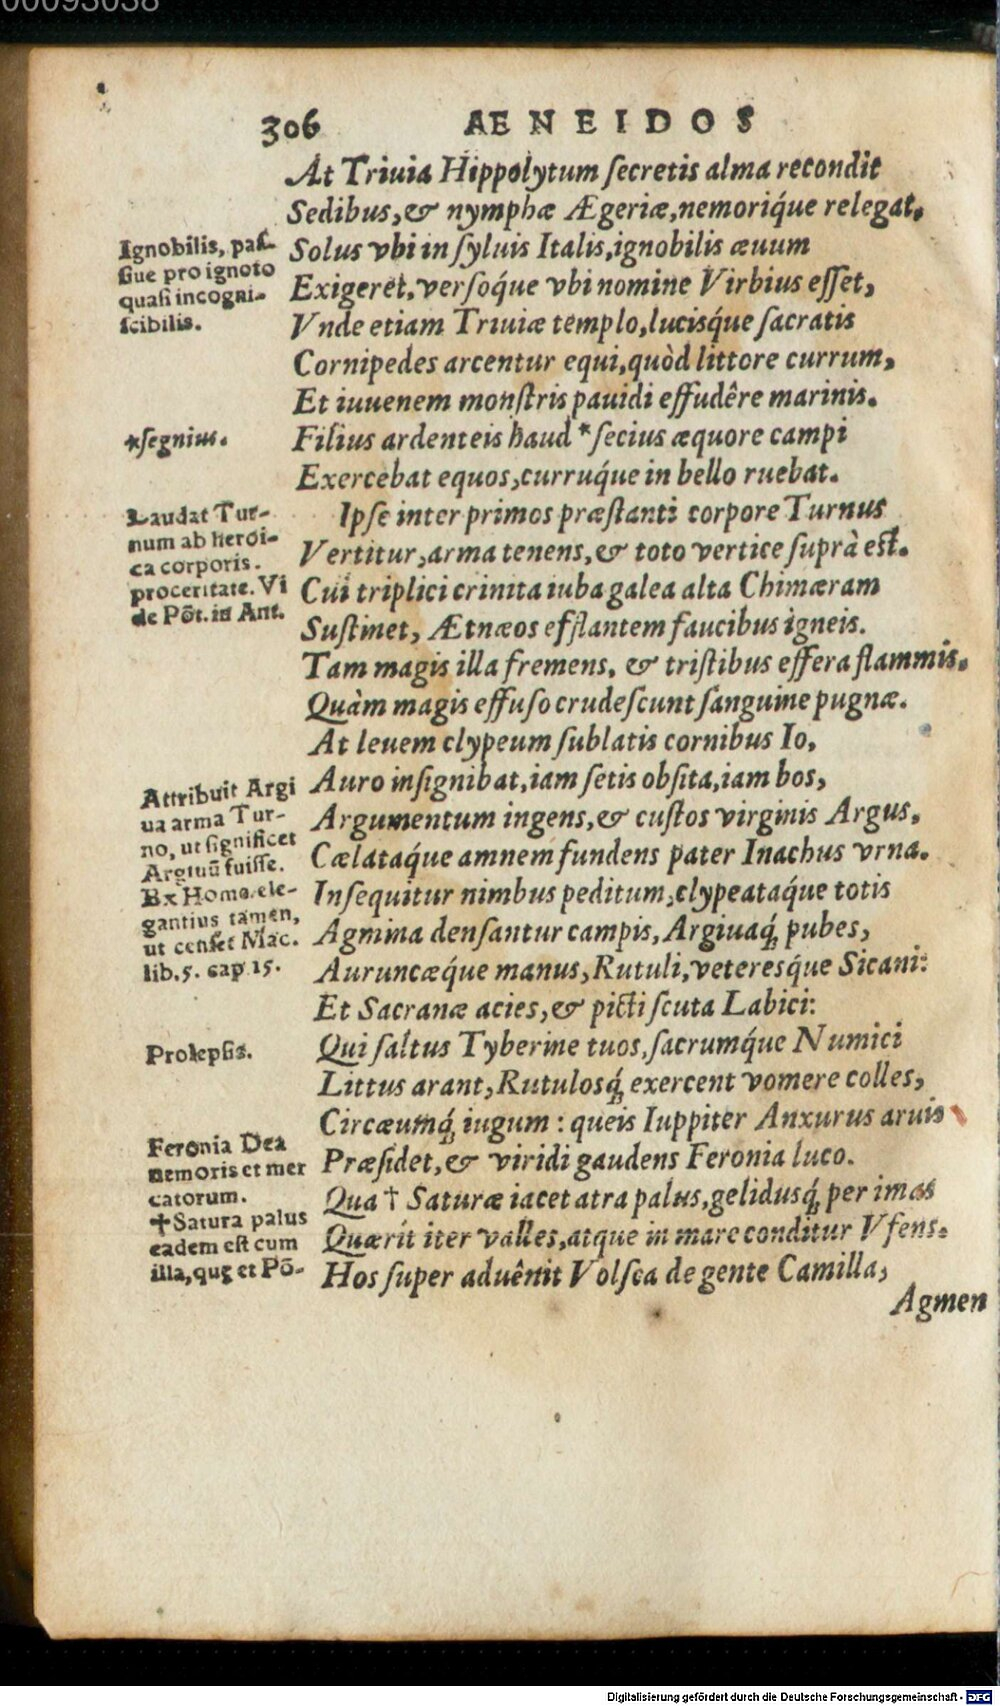 00093038
306 AENEIDOS
At Triuia Hippolytum ſecretis alma recondit
Sedibus, & nymphæ Ægeriæ, nemoriq́ue relegat,
Solus vbi in ſyluis Italis, ignobilis æuum
Exigeret, verſoq́ue vbi nomine Virbius eſſet,
Vnde etiam Triuiæ templo, lucisq́ue ſacratis
Cornipedes arcentur equi, quòd littore currum,
Et iuuenem monſtris pauidi effudêre marinis.
Filius ardenteis haud * ſecius æquore campi
Exercebat equos, curruq́ue in bello ruebat.
Ipſe inter primos præſtanti corpore Turnus
Vertitur, arma tenens, & toto vertice ſuprà eſt.
Cui triplici crinita iuba galea alta Chimæram
Suſtinet, Ætnæos efflantem faucibus igneis.
Tam magis illa fremens, & triſtibus effera flammis.
Quàm magis effuſo crudeſcunt ſanguine pugnæ.
At leuem clypeum ſublatis cornibus Io,
Auro inſignibat, iam ſetis obſita, iam bos,
Argumentum ingens, & cuſtos virginis Argus,
Cælataq́ue amnem fundens pater Inachus vrna.
Inſequitur nimbus peditum, clypeataq́ue totis
Agmina denſantur campis, Argiuaq́; pubes,
Auruncæq́ue manus, Rutuli, veteresq́ue Sicani:
Et Sacranæ acies, & picti ſcuta Labici:
Qui ſaltus Tyberine tuos, ſacrumq́ue Numici
Littus arant, Rutulosq́; exercent vomere colles,
Circæumq́; iugum : queis Iuppiter Anxurus aruis
Præſidet, & viridi gaudens Feronia luco.
Qua † Saturæ iacet atra palus, gelidusq́; per imas
Quærit iter valles, atque in mare conditur Vfens.
Hos ſuper aduênit Volſca de gente Camilla,
Agmen
Ignobilis, paſ-
ſiue pro ignoto
quaſi incogni-
ſcibilis.
*ſegnius.
Laudat Tur-
num ab heroi-
ca corporis.
proceritate. Vi
de Põt. in Ant.
Attribuit Argi
ua arma Tur-
no, ut ſignificet
Argiuũ fuiſſe.
Ex Homo. ele-
gantius tamen,
ut cenſet Mac.
lib. 5. cap 15.
Prolepſis.
Feronia Dea
nemoris et mer
catorum.
†Satura palus
eadem eſt cum
illa, quę et Põ-
Digitalisierung gefördert durch die Deutsche Forschungsgemeinschaft - DFG